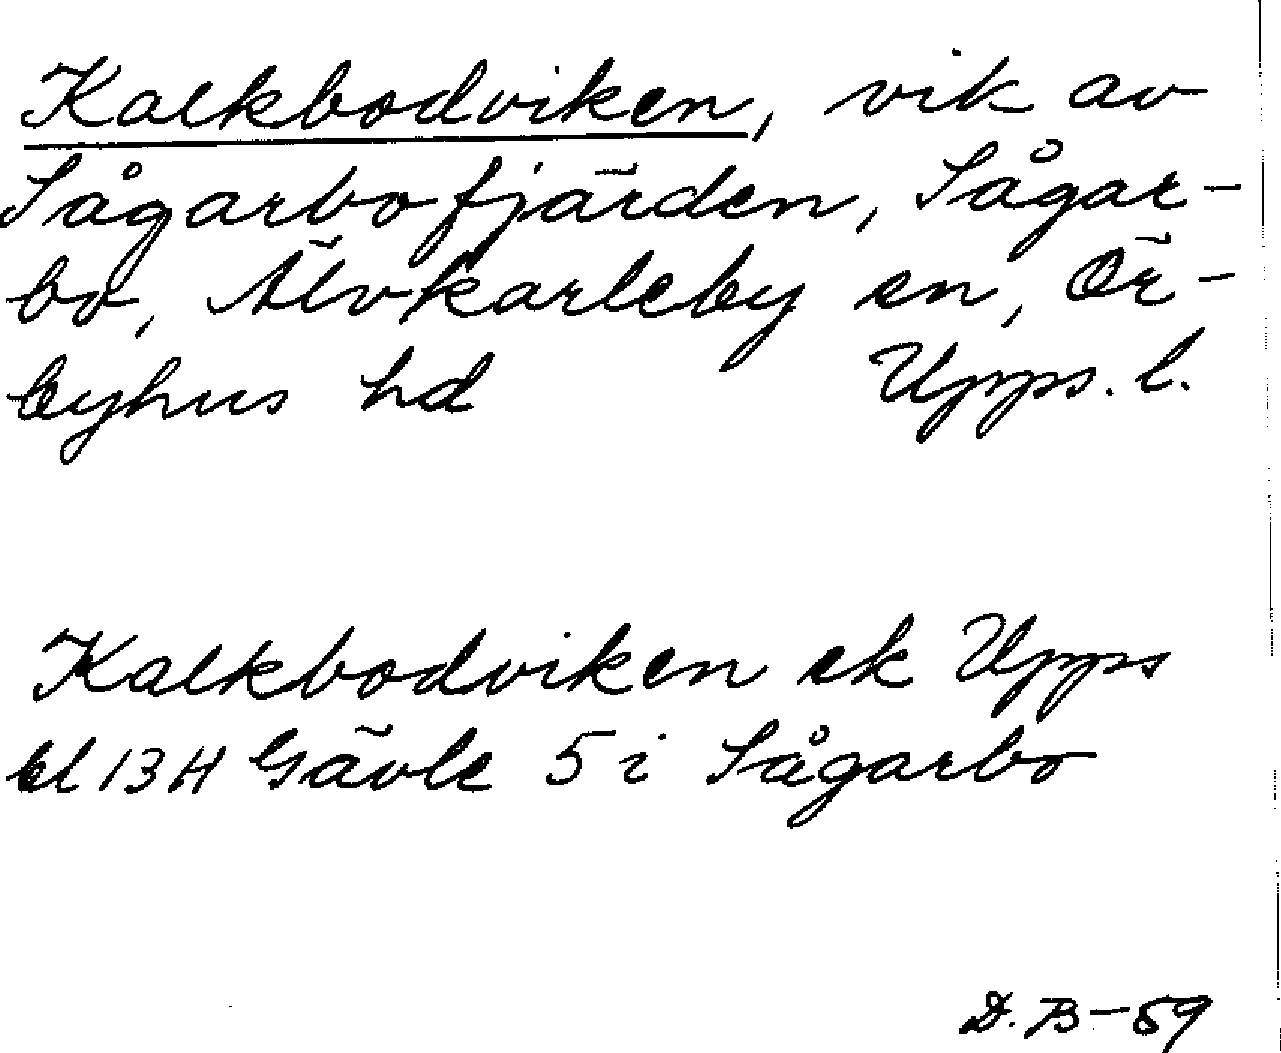 Kalkbodviken, vik av
Sågarbofjärden, Sågar-
bo, Älvkarleby sn, Ör-
byhus hd Upps. l.
Kalkbodviken ek Upps
bl 13H Gävle 5 i Sågarbo
D. B-59